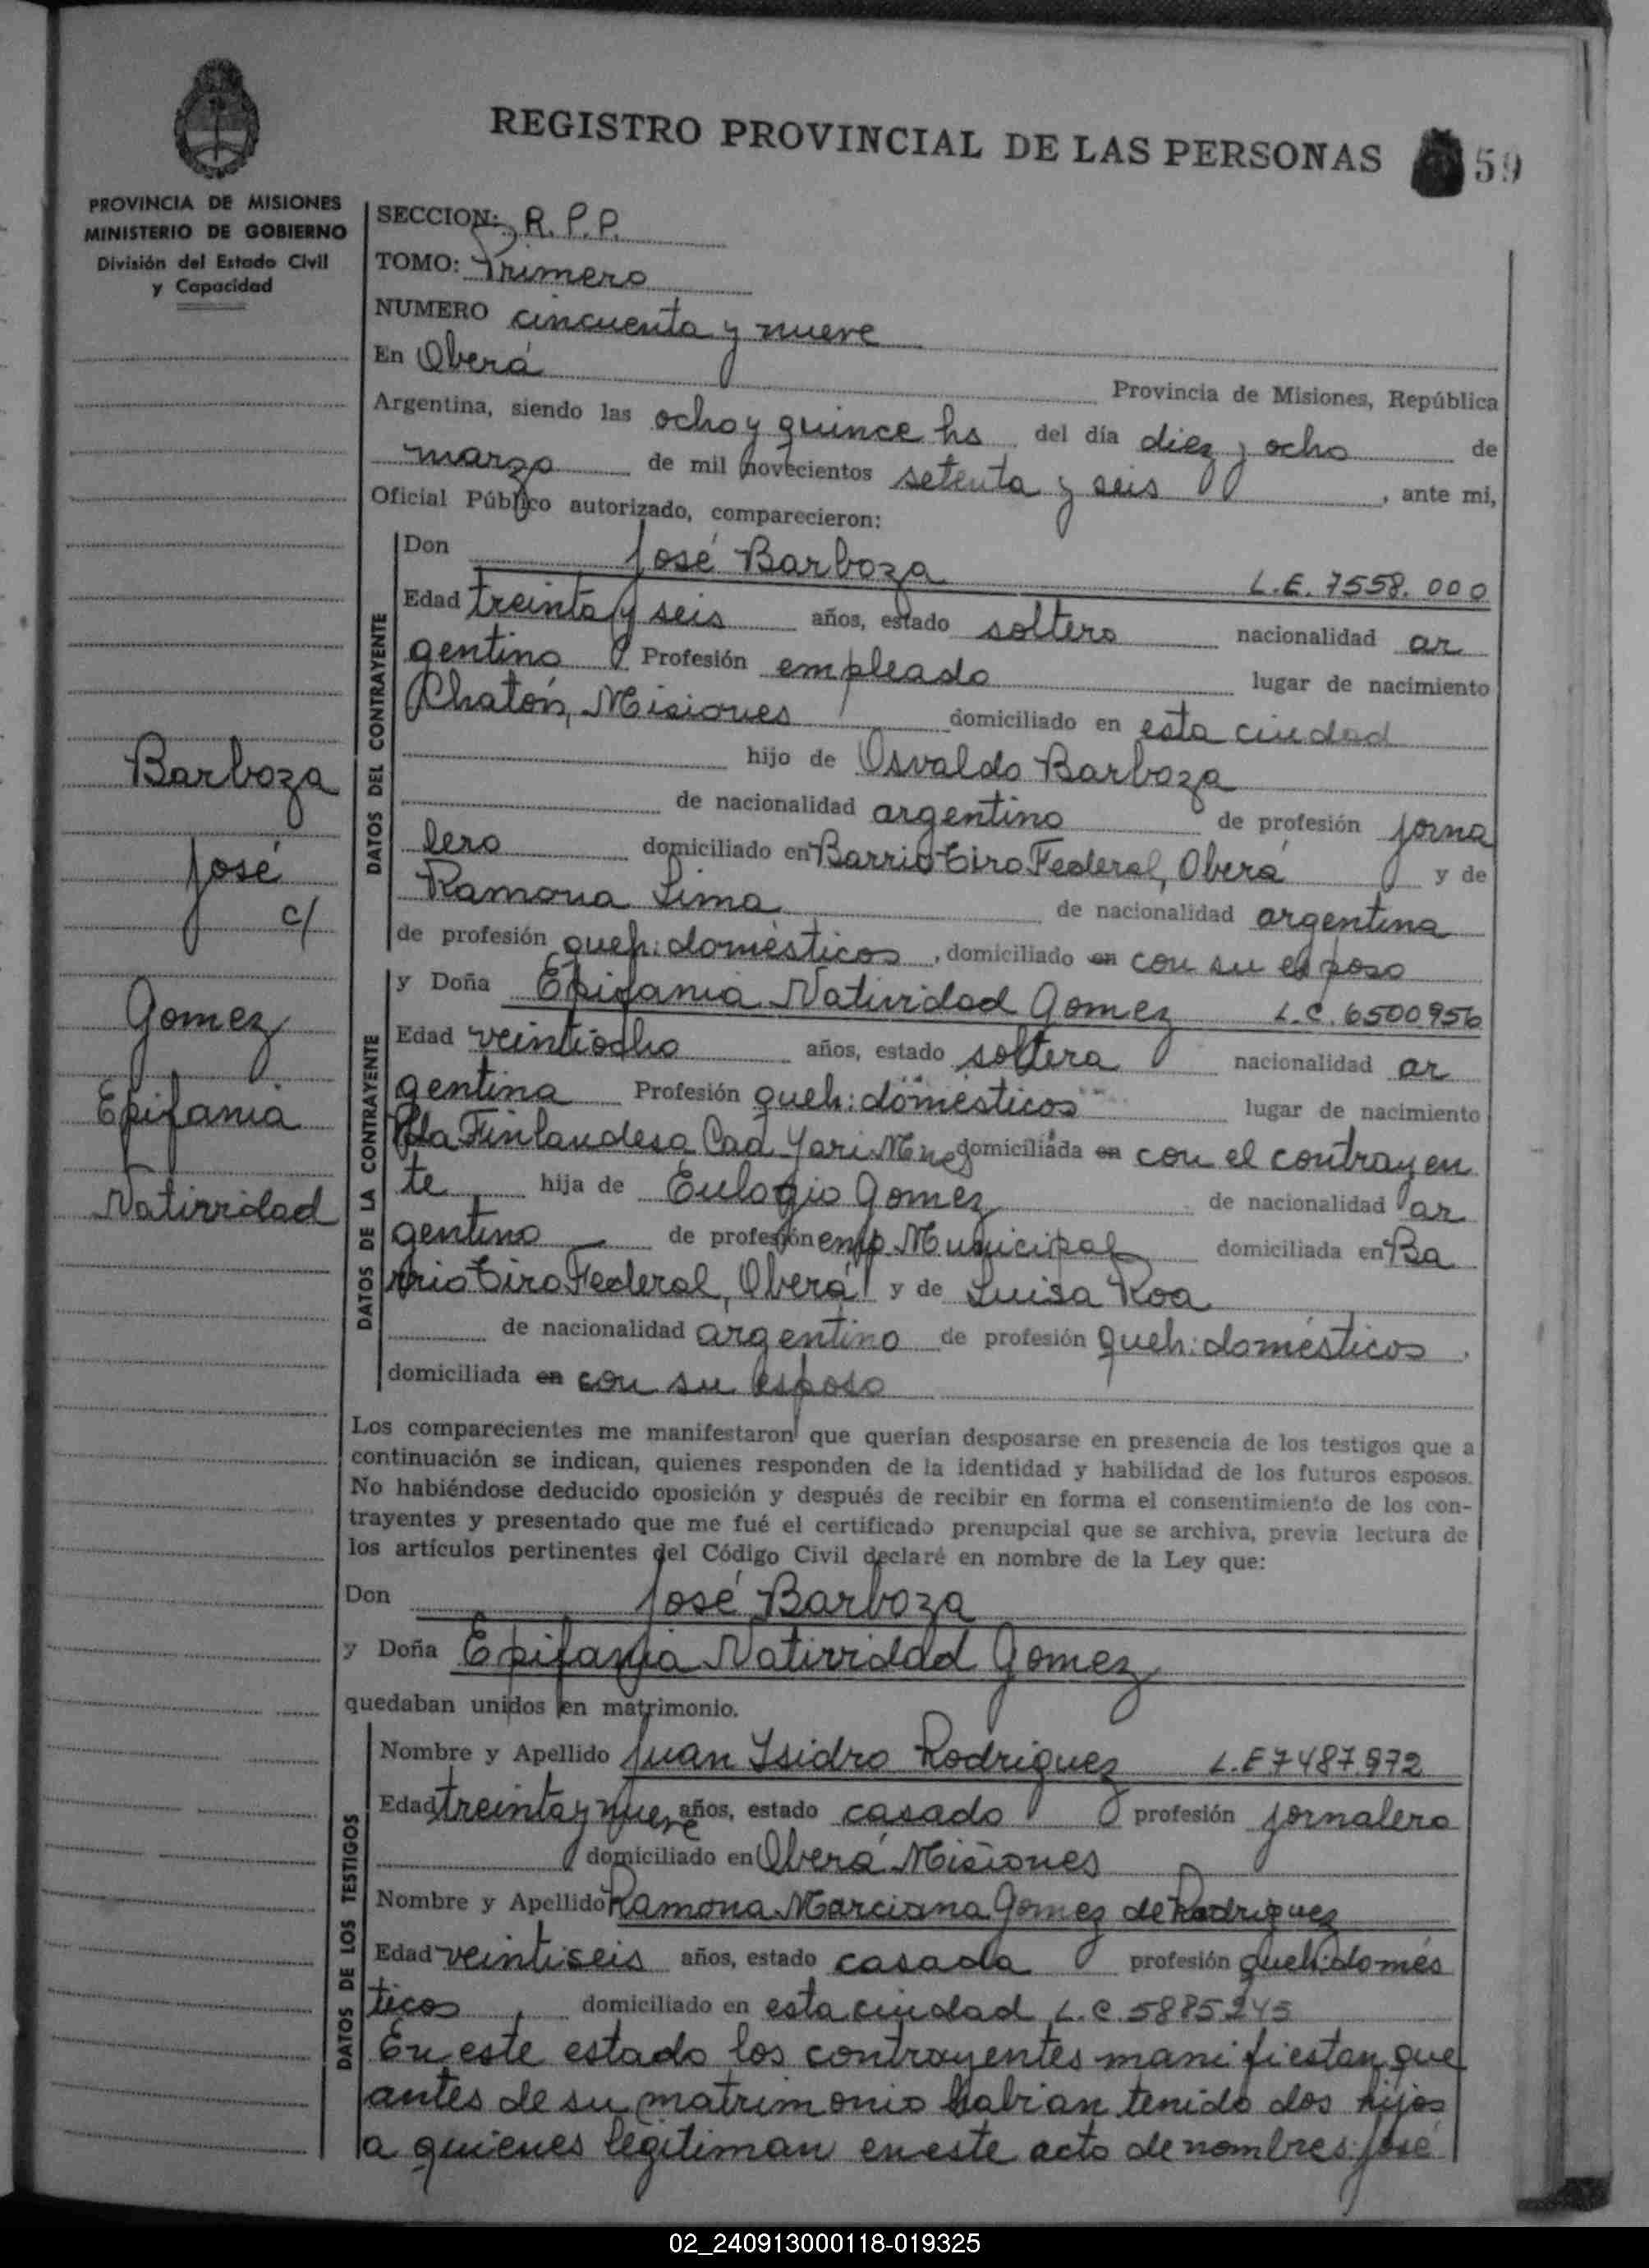 REGISTRO PROVINCIAL DE LAS PERSONAS
59
PROVINCIA DE MISIONES
MINISTERIO DE GOBIERNO
División del Estado Civil
y Capacidad
SECCION: R.P.P.
TOMO: Primero
NUMERO cincuenta y nueve
En Oberá
Provincia de Misiones, República
Argentina, siendo las ocho y quince hs del día diez y ocho de
marzo de mil novecientos setenta y seis, ante mi,
Oficial Público autorizado, comparecieron:
DATOS DEL CONTRAYENTE
Don José Barboza L.E. 7558.000
Edad treinta y seis años, estado soltero nacionalidad ar
gentino Profesión empleado lugar de nacimiento
Misiones domiciliado en esta ciudad
hijo de Osvaldo Barboza
de nacionalidad argentino de profesión jorna
lero domiciliado en Barrio Tiro Federal, Oberá y de
Ramona Lima de nacionalidad argentina
de profesión queh: domésticos, domiciliado en con su esposo
Barboza
José
c/
Gomez
Epifania
Natividad
DATOS DE LA CONTRAYENTE
y Doña Epifania Natividad Gomez L.C. 6500956
Edad veintiocho años, estado soltera nacionalidad ar
gentina Profesión queh: domésticos lugar de nacimiento
Finlandesa domiciliada en con el contrayen
te hija de Eulogio Gomez de nacionalidad ar
gentino de profesión emp Municipal domiciliada en Ba
rrio Tiro Federal, Oberá y de Luisa Roa
de nacionalidad argentino de profesión queh: domésticos.
domiciliada en con su esposo
Los comparecientes me manifestaron que querían desposarse en presencia de los testigos que a
continuación se indican, quienes responden de la identidad y habilidad de los futuros esposos.
No habiéndose deducido oposición y después de recibir en forma el consentimiento de los con-
trayentes y presentado que me fué el certificado prenupcial que se archiva, previa lectura de
los artículos pertinentes del Código Civil declaré en nombre de la Ley que:
Don José Barboza
y Doña Epifania Natividad Gomez
quedaban unidos en matrimonio.
DATOS DE LOS TESTIGOS
Nombre y Apellido Juan Isidro Rodriguez L.E 7487.972
Edad treinta y nueve años, estado casado profesión jornalero
domiciliado en Oberá Misiones
Nombre y Apellido Ramona Marciana Gomez de Rodriguez
Edad veintiseis años, estado casada profesión queh: domés
ticos, domiciliado en esta ciudad L.C. 5885245
En este estado los contrayentes manifiestan que
antes de su matrimonio habian tenido dos hijos
a quienes legitiman en este acto de nombres: José
02_240913000118-019325